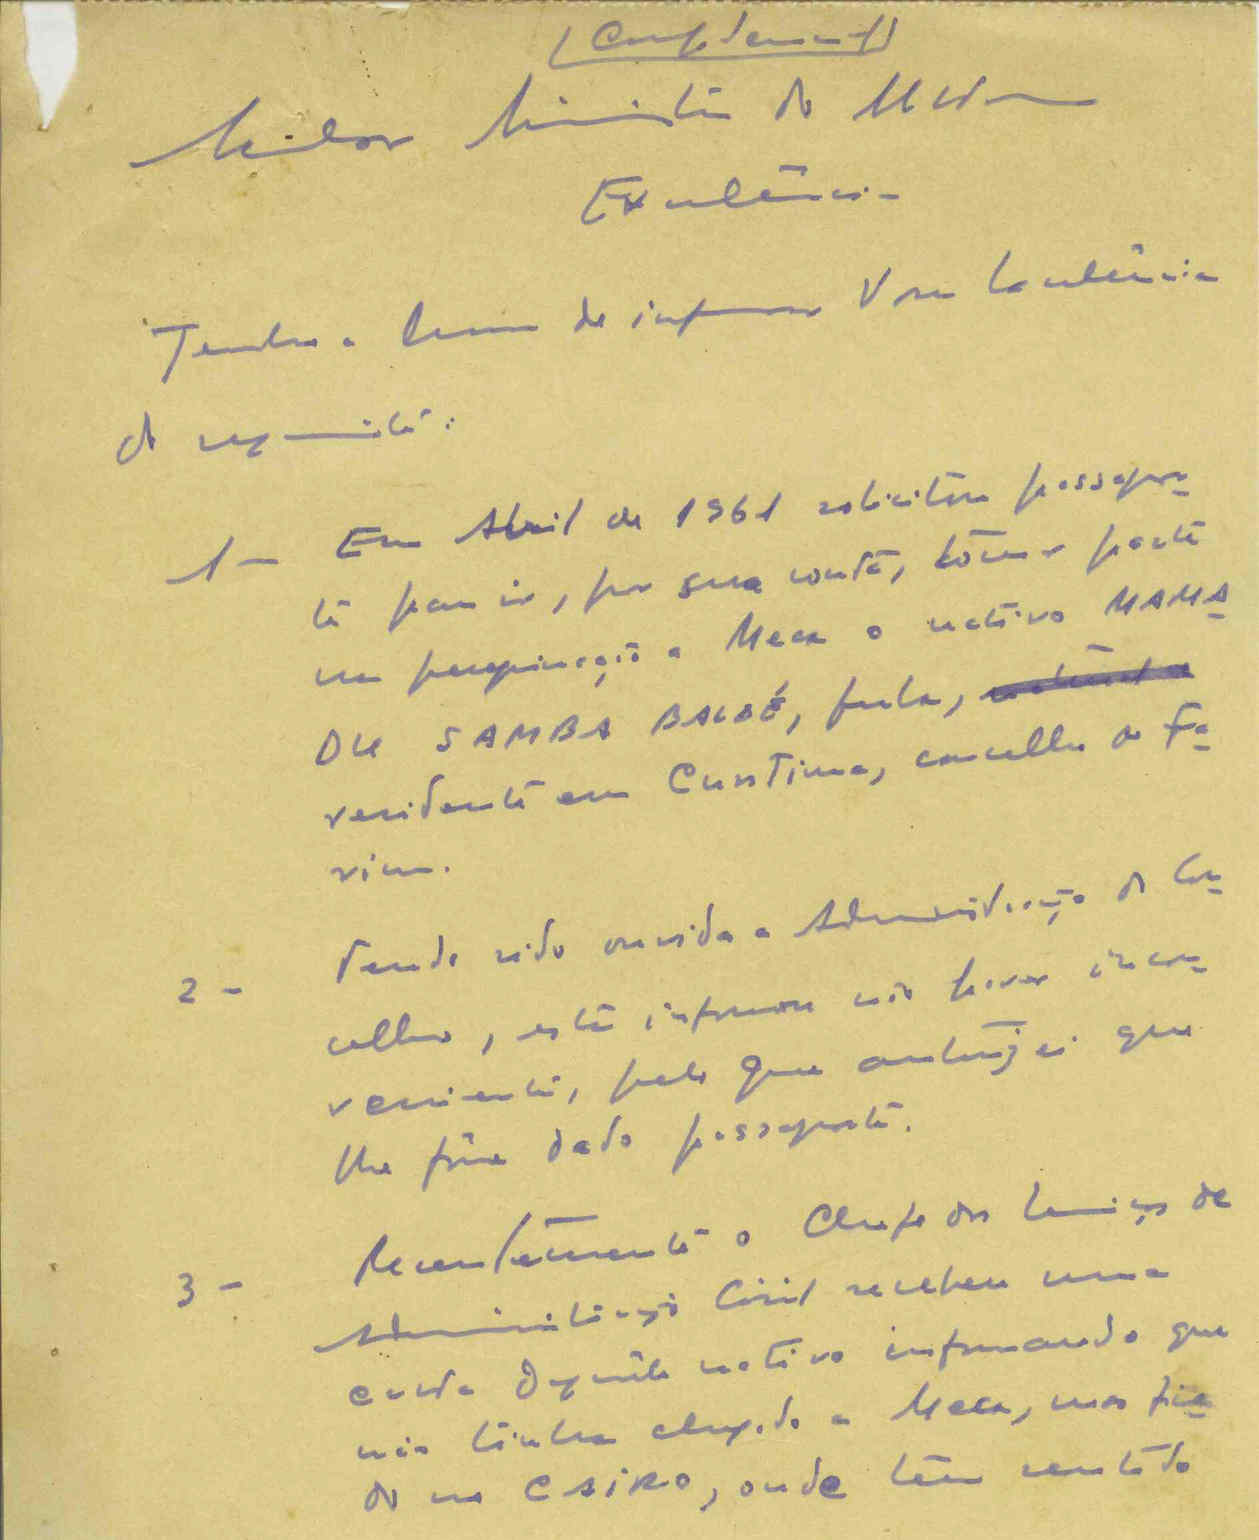 (Confidencial)
Senhor Ministro do Ultramar
Excelência
Tenho a honra de informar Vossa Excelência
do seguinte:
1 - Em Abril de 1961 solicitou passapor-
te para ir, por sua conta, tomar parte
na peregrinação a Meca o nativo MAMA-
DU SAMBA BALDÉ, fula,
residente em Cuntima, concelho de Fa-
rim.
2 - Tendo sido ouvida a Administração do Con-
celho, esta informou não haver incon-
veniente, pelo que autorizei que
lhe fôsse dado passaporte.
3 - Recentemente o Chefe dos Serviços de
Administração Civil recebeu uma
carta daquele nativo informando que
não tinha chegado a Meca, mas fica-
do no CAIRO, onde tem